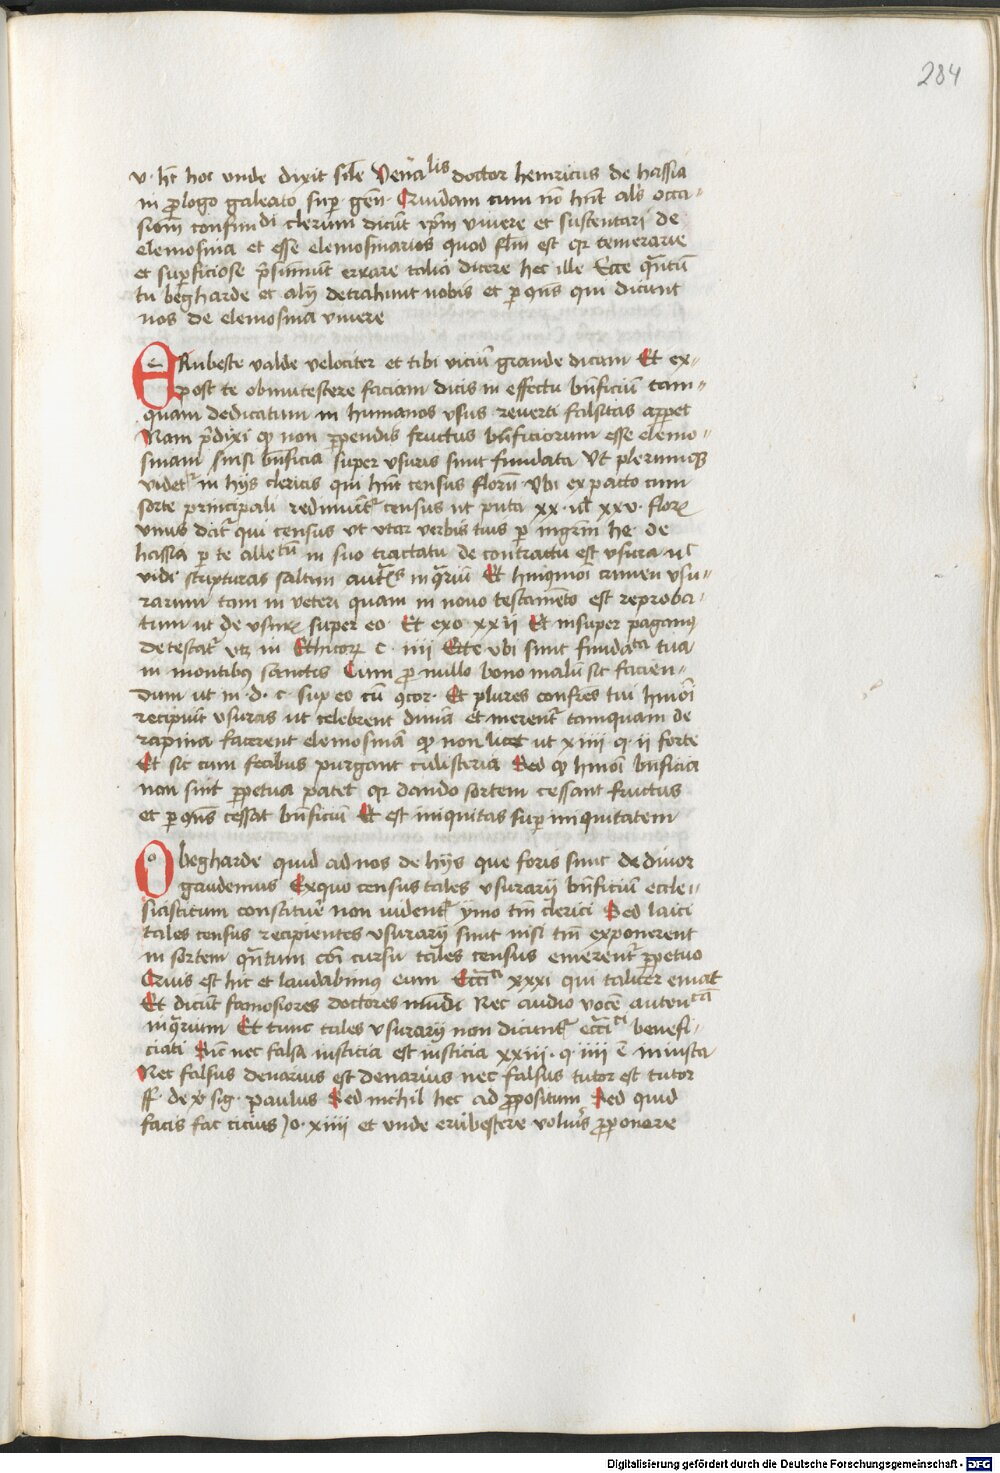 284
v. hec hoc unde dixit simile venerabilis doctor heinricus de hassia
in prologo galeato super gen. Quidam cum non hnt alias occa-
sionem confundendi clerum dicunt ipsum vivere et sustentari de
elemosina et esse elemosinarios quod falsum est qr temerarie
et superficiose presumunt errare talia dicere hec ille Ecce quantum
tu begharde et alij detrahunt nobis et per qns qui dicunt
nos de elemosina vivere
ERubeste valde velociter et tibi viciu grande dicam Et ex-
post te obmutestere faciam dicis in effectu bnficiu tam-
quam dedicatum in humanos usus reverti falsitas apparet
Nam predixi qp non perpendis fructus bnficiorum esse elemo-
sinam sinisi bnficia super usuris sint fundata Ut plerumque
videtur in hijs clericis qui hnt census florum Ubi ex pacto cum
sorte principali redimunter census ut puta xx. vel xxv. flor
unus datur qui census ut utar verbis tuis per mgrm he. de
hassia per te allectum in suo tractatu de contractu est usura vel
vide scripturas saltim in Et huiusmodi crimen usu-
rarum tam in veteri quam in novo testamento est reproba-
tum ut de usuris super eo. Et exo xxii Et insuper paganus
detestatur utz in Ethicorum c. iiii Ecce ubi sint fundata tua
in montibus sanctis Cum pro nullo bono malum sit facien-
dum ut in. d. c. sup eo cum concor. Et plures confres tui hmoi
recipiunt usuras ut celebrent divina et merentur tamquam de
rapina facerent elemosinam qp non licet ut xiiii q ii forte
Et sic cum fecibus purgant cilisteria Sed qp hmoi bnficia
non sint perpetua patet qr dando sortem cessant fructus
et per qns cessat bnficiu Et est iniquitas super iniquitatem
O begharde quid ad nos de hijs que foris sunt de divor
gaudemus Exquo census tales usurarij bnficium eccle-
siasticum constituere non videntur ymo tm clerici Sed laici
tales census recipientes usurarij sunt nisi tm exponerent
in sortem quantum coi cursu tales census emerentur perpetuo
Quis est hic et laudabimus eum Eccci xxxi qui taliter emat
Et dicunt famosiores doctores mundi Nec audio vocem
Et tunc tales usurarij non dicuntur benefi-
ciati Sic nec falsa iusticia est iusticia xxiii. q iiii e iniusta
Nec falsus denarius est denarius nec falsus tutor est tutor
ff. de v sig. paulus Sed nichil hec ad propositum Sed quid
facis fac cicius Jo. xiiii et unde erubestere volueris proponere
Digitalisierung gefördert durch die Deutsche Forschungsgemeinschaft - DFG